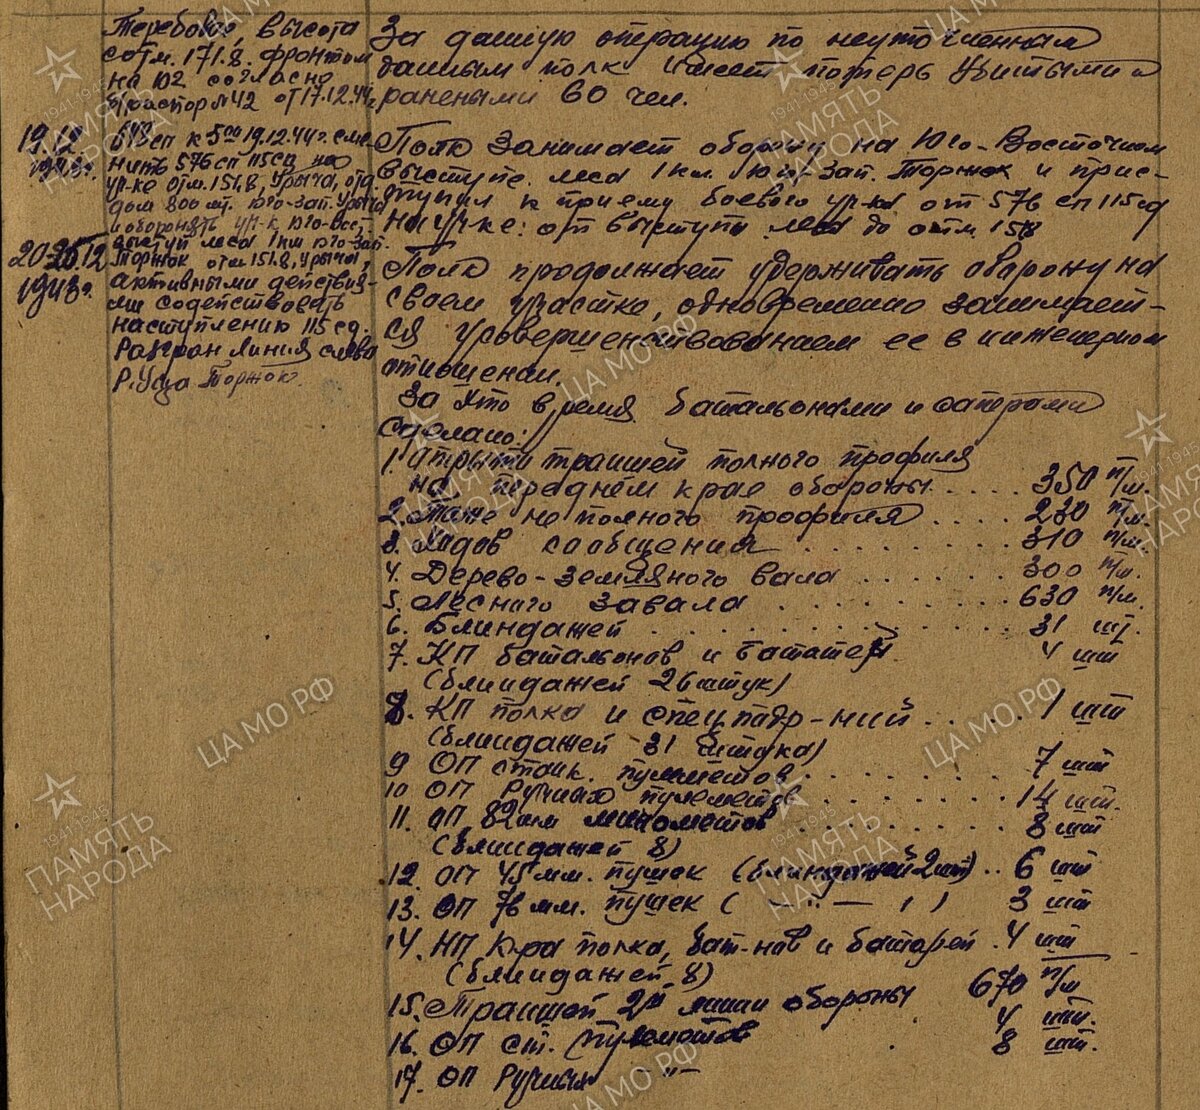 Теребовое, высота
с отм. 171.8. фронтом
на ЮЗ согласно
17.12.44г.
За данную операцию по неуточненным
данным полк имеет потерь убитыми и
ранеными 60 чел.
19.12.
648 сп к 5 00 19.12.44г. сме-
нить 576 сп 115 сд на
ур-ке отм. 151.8,
дом 800 мт. юго-зап.
и оборонять ур-к юго-вост.
выступ леса 1 км юго-зап.
Торжок отм. 151.8,
активными действия-
ми содействовать
наступлению 115 сд.
Разгран линия слева
Торжок.
Полк занимает оборону на Юго-Восточном
выступе леса 1 км. юго-зап. Торжок и прис-
тупил к приему боевого ур-ка от 576 сп 115 сд
на ур-ке: от выступа леса до отм. 158
20-25.12
Полк продолжает удерживать оборону на
своем участке, одновременно занимает-
ся усовершенствованием ее в инженерном
отношении.
За это время батальонами и саперами
сделано:
1. Отрыто траншей полного профиля
на переднем крае обороны ..... 350 п/м.
2. Тоже не полного профиля .... 230 п/м.
3. Ходов сообщения ......... 310 п/м.
4. Дерево-земляного вала ....... 300 п/м.
5. Лесного завала .......... 630 п/м.
6. Блиндажей ............ 31 шт.
7. КП батальонов и батарей 4 шт
(блиндажей 26 штук)
8. КП полка и спец подр-ний ..... 1 шт
(блиндажей 31 штука)
9 ОП станк. пулеметов ........ 7 шт
10 ОП Ручных пулеметов ........ 14 шт.
11. ОП 82 мм минометов ......... 8 шт
(блиндажей 8)
12. ОП 45 мм. пушек (блиндажей 2 шт) .. 6 шт
13. ОП 76 мм. пушек ( — " — ) 3 шт
14. НП К-ра полка, бат-нов и батарей . 4 шт
(блиндажей 8)
15. Траншей 2й линии обороны 670 п/м
16. ОП ст. пулеметов 4 шт.
17. ОП Ручных -"- 8 шт.
ПАМЯТЬ
НАРОДА
1941-1945
ЦА МО РФ